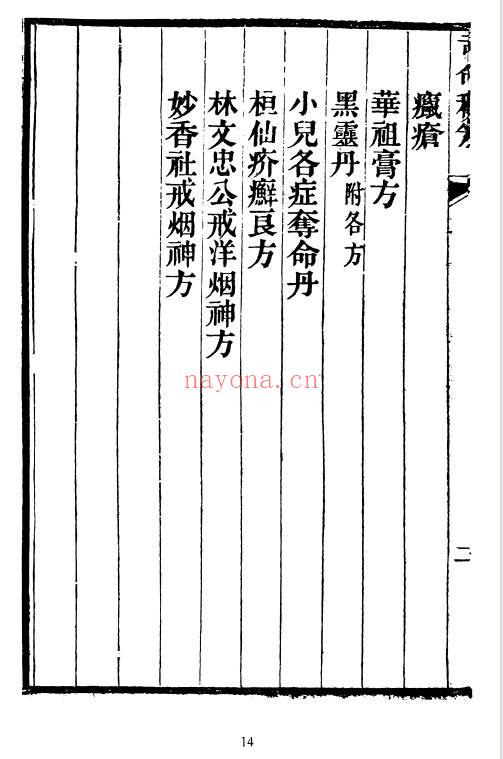 癘瘡
華祖膏方
黑靈丹 附各方
小兒各症奪命丹
桓仙疥癬良方
林文忠公戒洋烟神方
妙香社戒烟神方
二
nayona.cn
14